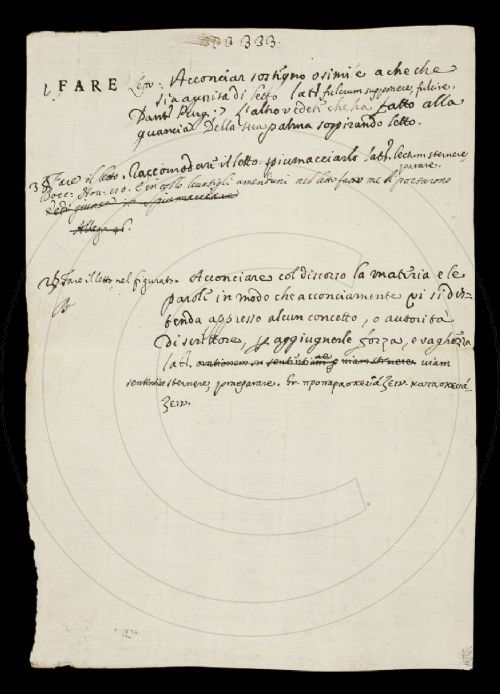 333
FARE Acconciar sostegno o simile a che che
sia a guisa di letto lat. fulcum supponere, fulcire.
Dant. Purg. 7 L'altro vedete che ha fatto alla
guancia Della sua palma sospirando letto.
Fare il letto. Raccomodare il letto. spiumacciarlo lat. lectum sternere
parare.
Bocc. Nov. E in collo levatigli amenduni nel letto me portarono
Fare il letto, nel figurato. Acconciare col discorso la materia e le
parole in modo che acconciamente vi si dis-
tenda appresso alcun concetto, o autorità
di scrittore, p aggiugnerle forza, e vaghezza
lat. viam
sententiae sternere, praeparare. Gr. προπαρασκευάζειν. κατασκευά-
ζειν.